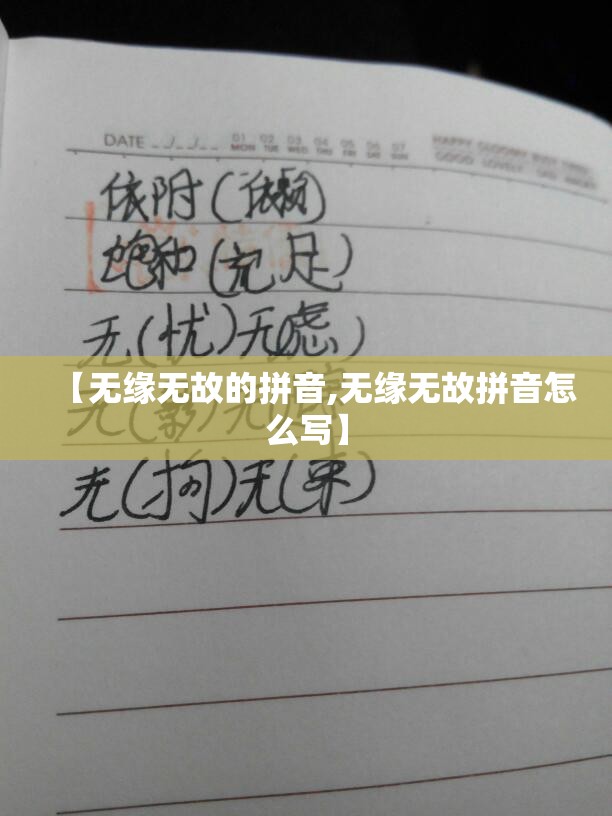 DATE 01 02 03 04 05 06 07
MON TUE WED THU FRI SAT SUN
HAPPY
GOOD LOVELY
依附(依赖)
饱和(充足)
无(忧)无(虑)
【无缘无故的拼音,无缘无故拼音怎
么写】
无(影)无
无(拘)无(束)